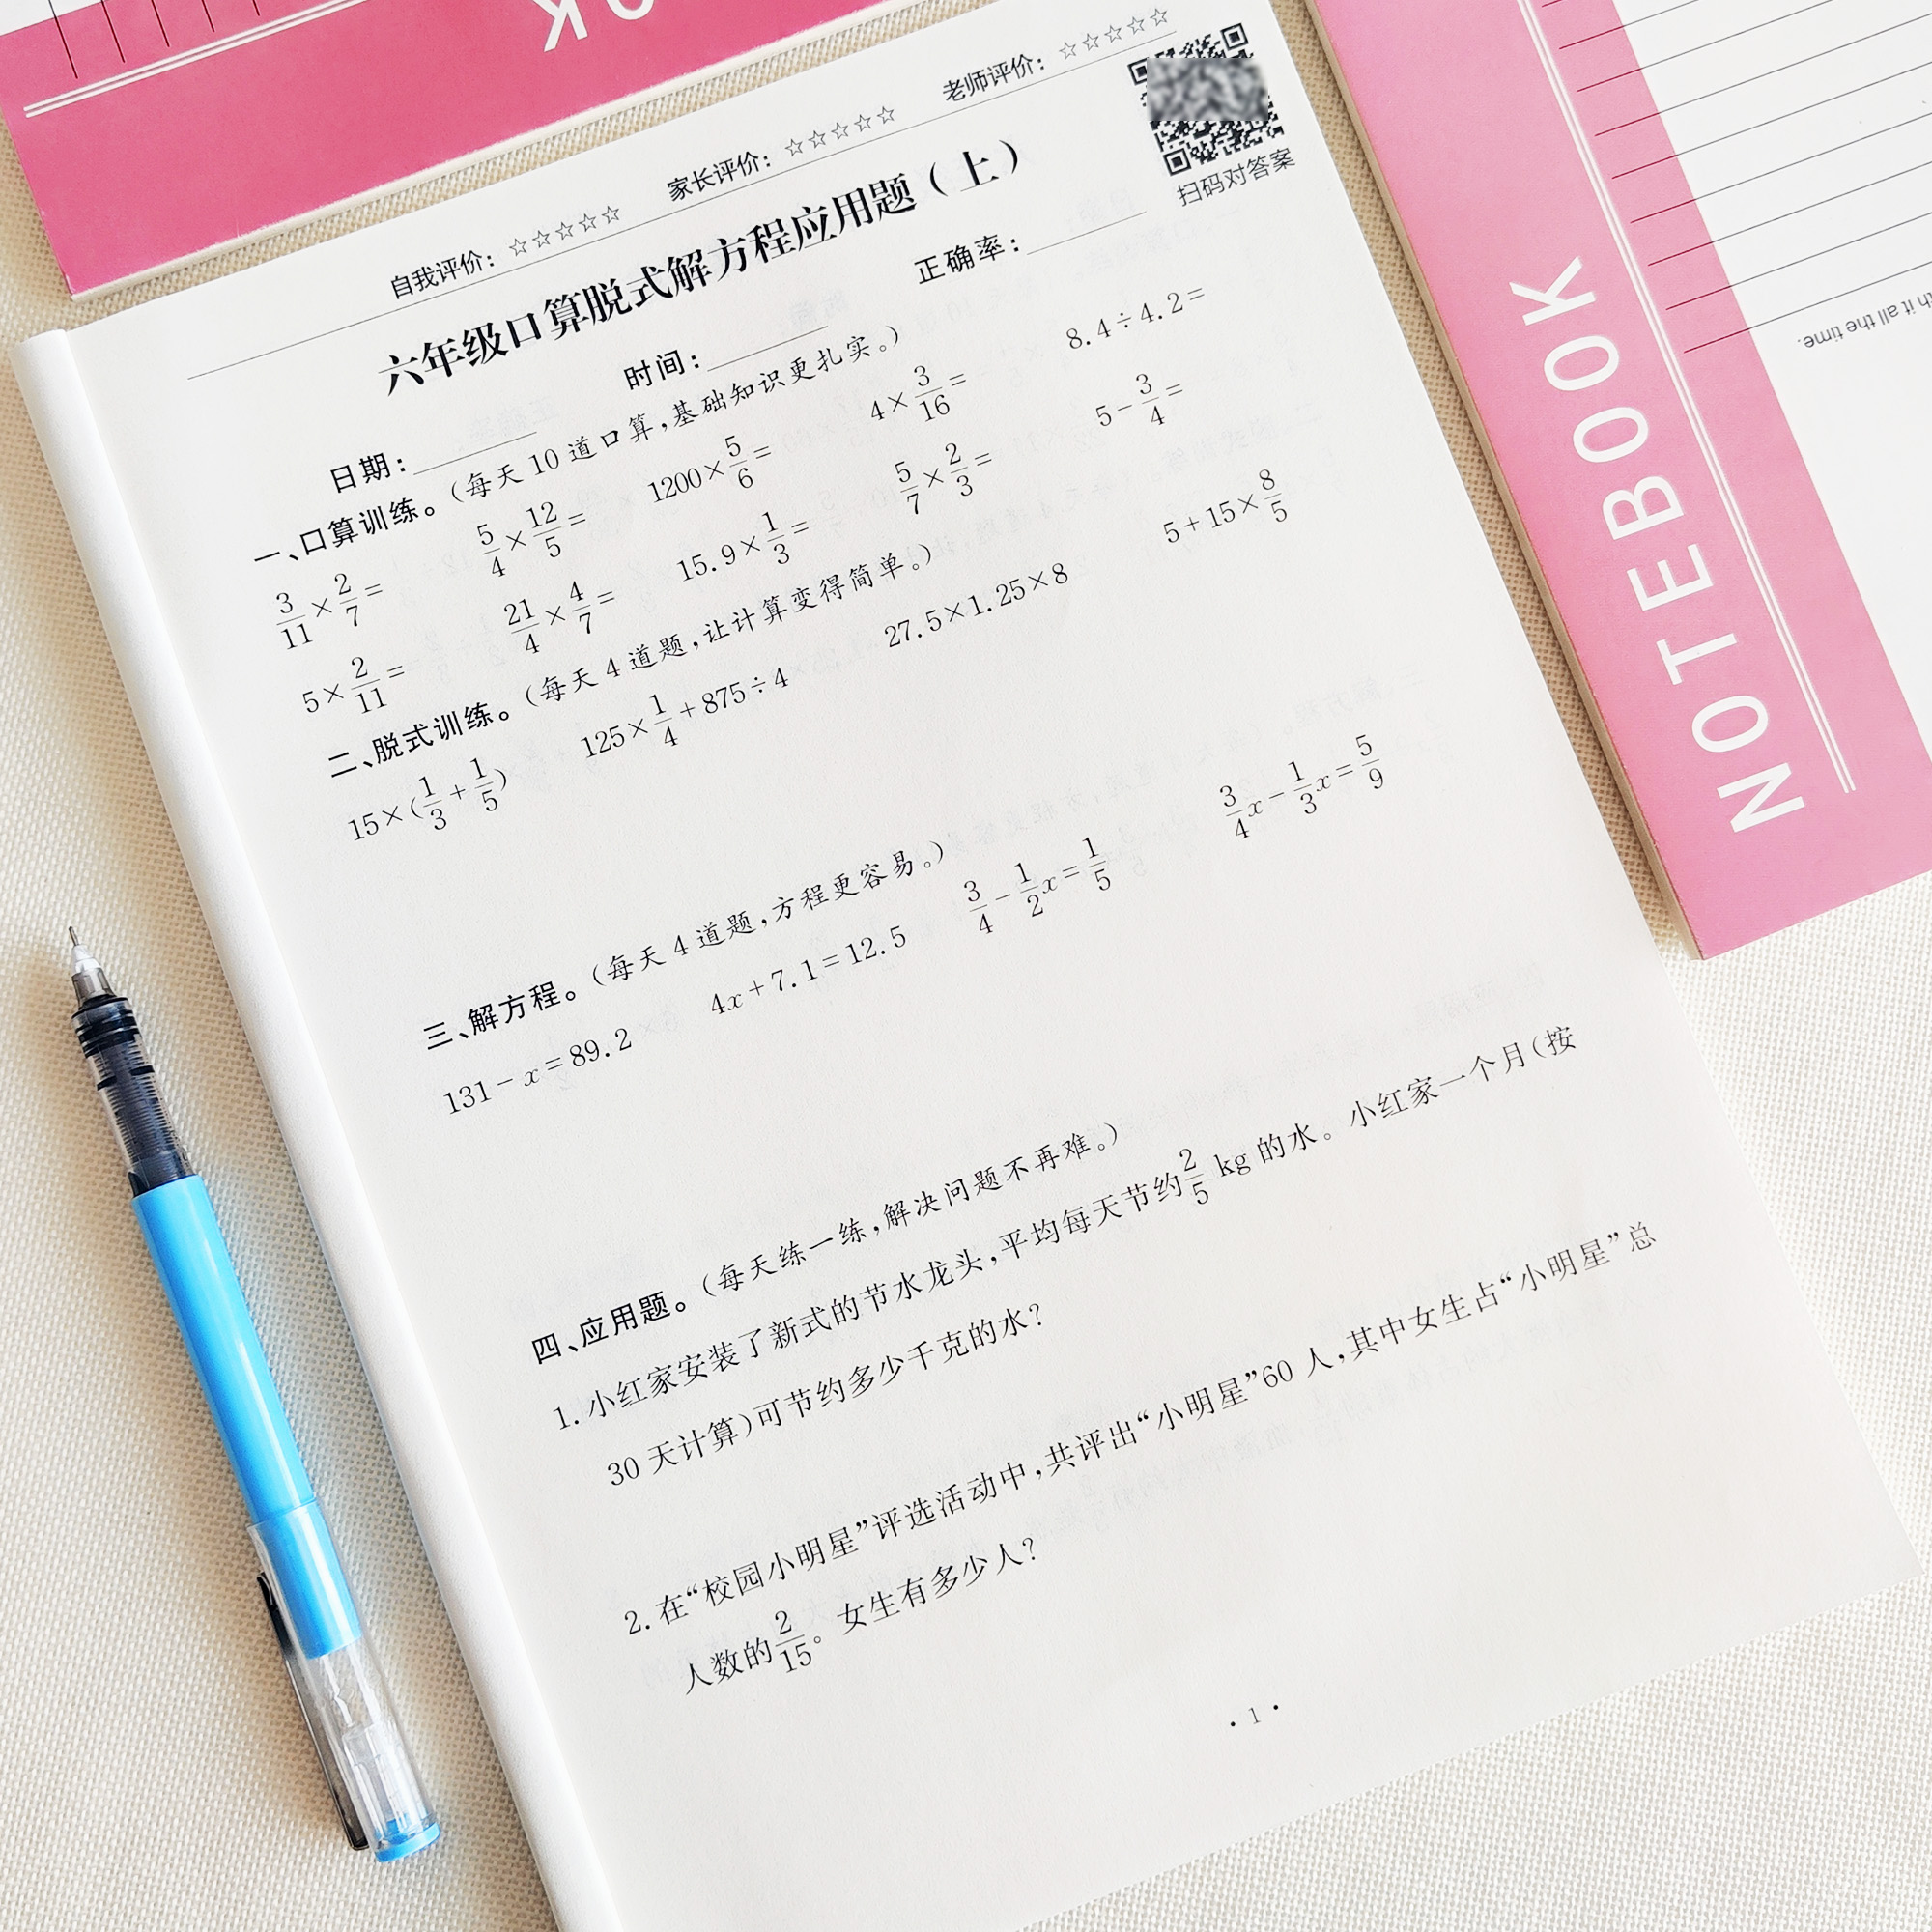 OK
自我评价：☆☆☆☆☆ 家长评价：☆☆☆☆☆ 老师评价：☆☆☆☆☆
扫码对答案
六年级口算脱式解方程应用题（上）
日期：________ 时间：________ 正确率：________
一、口算训练。（每天 10 道口算，基础知识更扎实。）
3/11×2/7= 5/4×12/5= 1200×5/6= 4×3/16= 8.4÷4.2=
5×2/11= 21/4×4/7= 15.9×1/3= 5/7×2/3= 5−3/4=
二、脱式训练。（每天 4 道题，让计算变得简单。）
15×(1/3+1/5) 125×1/4+875÷4 27.5×1.25×8 5+15×8/5
三、解方程。（每天 4 道题，方程更容易。）
131−x=89.2 4x+7.1=12.5 3/4−1/2x=1/5 3/4x−1/3x=5/9
四、应用题。（每天练一练，解决问题不再难。）
1. 小红家安装了新式的节水龙头，平均每天节约2/5 kg 的水。小红家一个月（按
30 天计算）可节约多少千克的水？
2. 在“校园小明星”评选活动中，共评出“小明星”60 人，其中女生占“小明星”总
人数的2/15。女生有多少人？
· 1 ·
NOTEBOOK
it all the time.